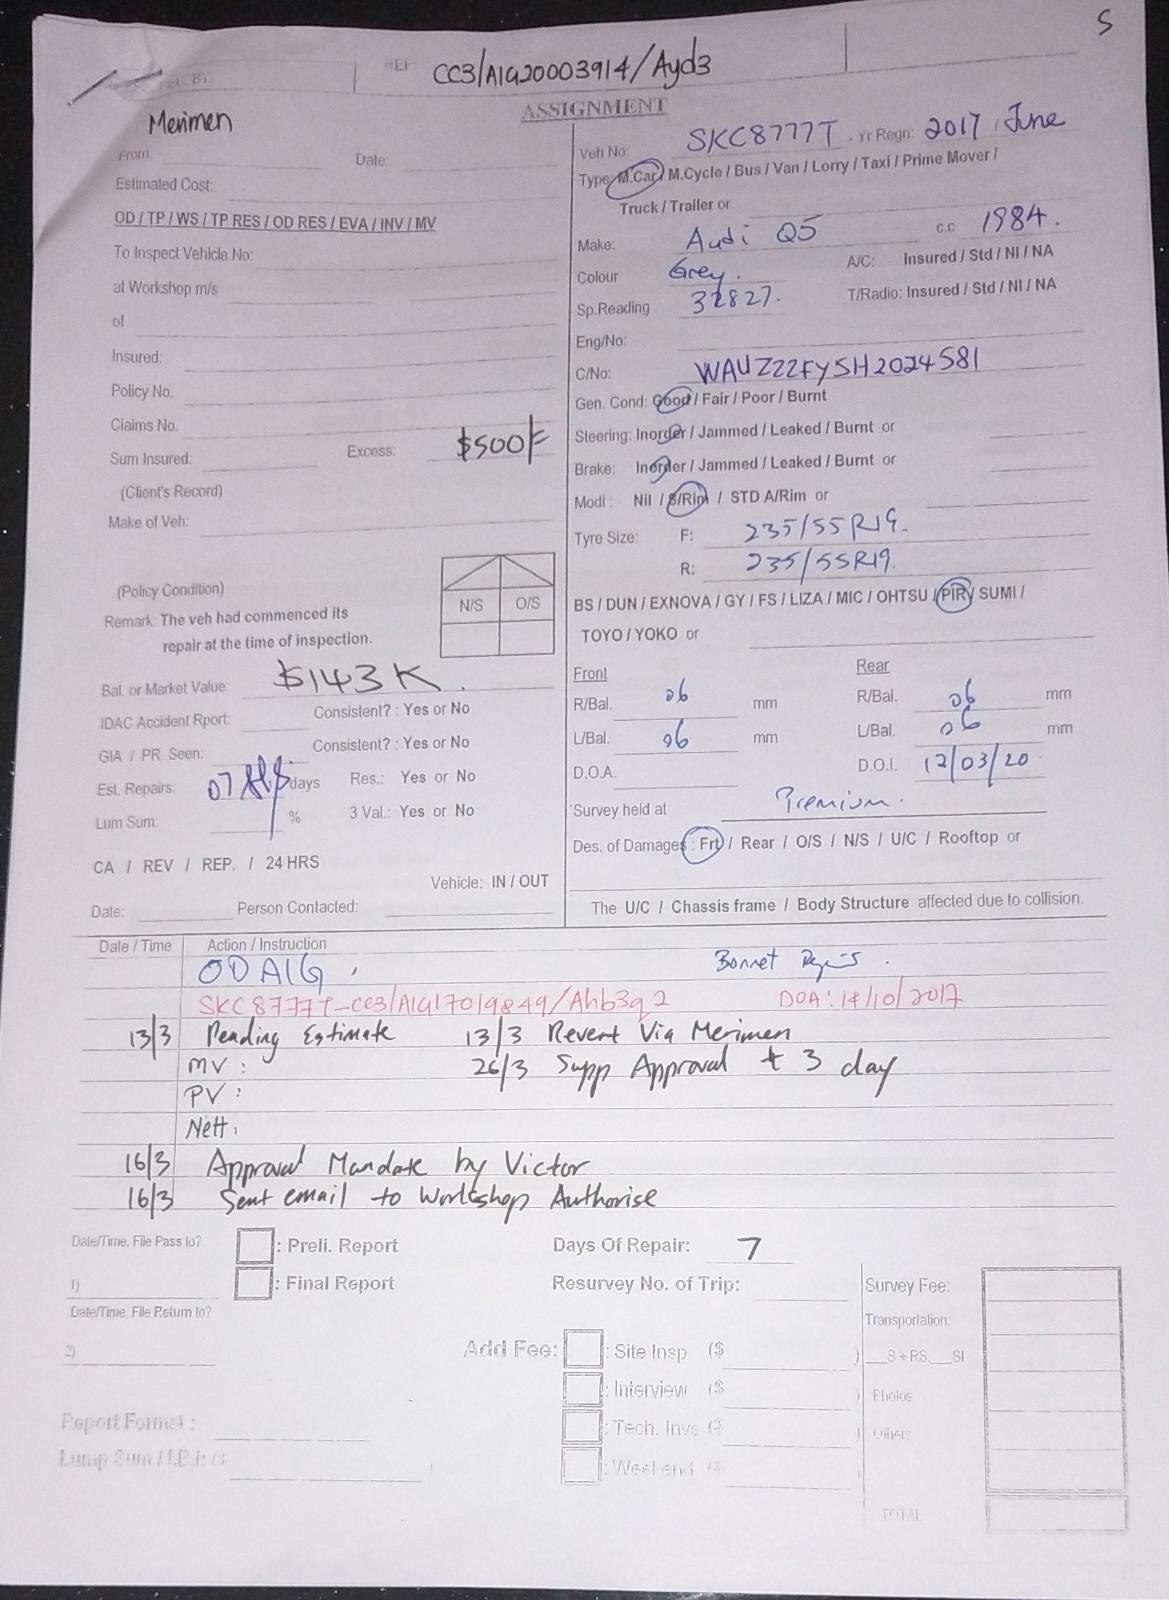 S
REF: CC3/AIG20003914/Ayd3
ASSIGNMENT
Merimen
From: Date:
Estimated Cost:
OD / TP / WS / TP RES / OD RES / EVA / INV / MV
To Inspect Vehicle No:
at Workshop m/s
of
Insured:
Policy No.
Claims No.
Sum Insured: Excess: $500/-
(Client's Record)
Make of Veh:
(Policy Condition)
N/S O/S
Remark: The veh had commenced its
repair at the time of inspection.
Bal. or Market Value $143K.
IDAC Accident Rport: Consistent? : Yes or No
GIA / PR Seen: Consistent? : Yes or No
Est. Repairs: 07 days Res.: Yes or No
Lum Sum: % 3 Val.: Yes or No
CA / REV / REP. / 24 HRS
Vehicle: IN / OUT
Date: Person Contacted:
Veh No: SKC8777T. Yr Regn: 2017 / June
Type: M.Car / M.Cycle / Bus / Van / Lorry / Taxi / Prime Mover /
Truck / Trailer or
Make: Audi Q5 c.c 1984.
Colour Grey. A/C: Insured / Std / NI / NA
Sp.Reading 32827. T/Radio: Insured / Std / NI / NA
Eng/No:
C/No: WAUZZZFY5H2024581
Gen. Cond: Good / Fair / Poor / Burnt
Steering: Inorder / Jammed / Leaked / Burnt or
Brake: Inorder / Jammed / Leaked / Burnt or
Modi: Nil / S/Rim / STD A/Rim or
Tyre Size: F: 235/55R19.
R: 235/55R19.
BS / DUN / EXNOVA / GY / FS / LIZA / MIC / OHTSU / PIR / SUMI /
TOYO / YOKO or
Front Rear
R/Bal. 06 mm R/Bal. 06 mm
L/Bal. 06 mm L/Bal. 06 mm
D.O.A. D.O.I. 12/03/20
Survey held at Premium.
Des. of Damages: Frt / Rear / O/S / N/S / U/C / Rooftop or
The U/C / Chassis frame / Body Structure affected due to collision.
Date / Time Action / Instruction
OD AIG, Bonnet
SKC8777T-CC3/AIG17019849/Ahb3q2 DOA: 14/10/2017
13/3 Pending Estimate 13/3 Revert Via Merimen
MV: 26/3 Supp Approval + 3 day
PV:
Nett:
16/3 Approval Mandate by Victor
16/3 Sent email to Workshop Authorise
Date/Time, File Pass to? : Preli. Report Days Of Repair: 7
1) : Final Report Resurvey No. of Trip: Survey Fee:
Date/Time, File Return to? Transportation:
2) Add Fee: : Site Insp ($ ) __S + RS,__SI
: Interview ($ ) Photos
Report Format : : Tech. Invs ($ ) Others
Lump Sum / I.B.I: ($ ) : Weekend ($ )
TOTAL